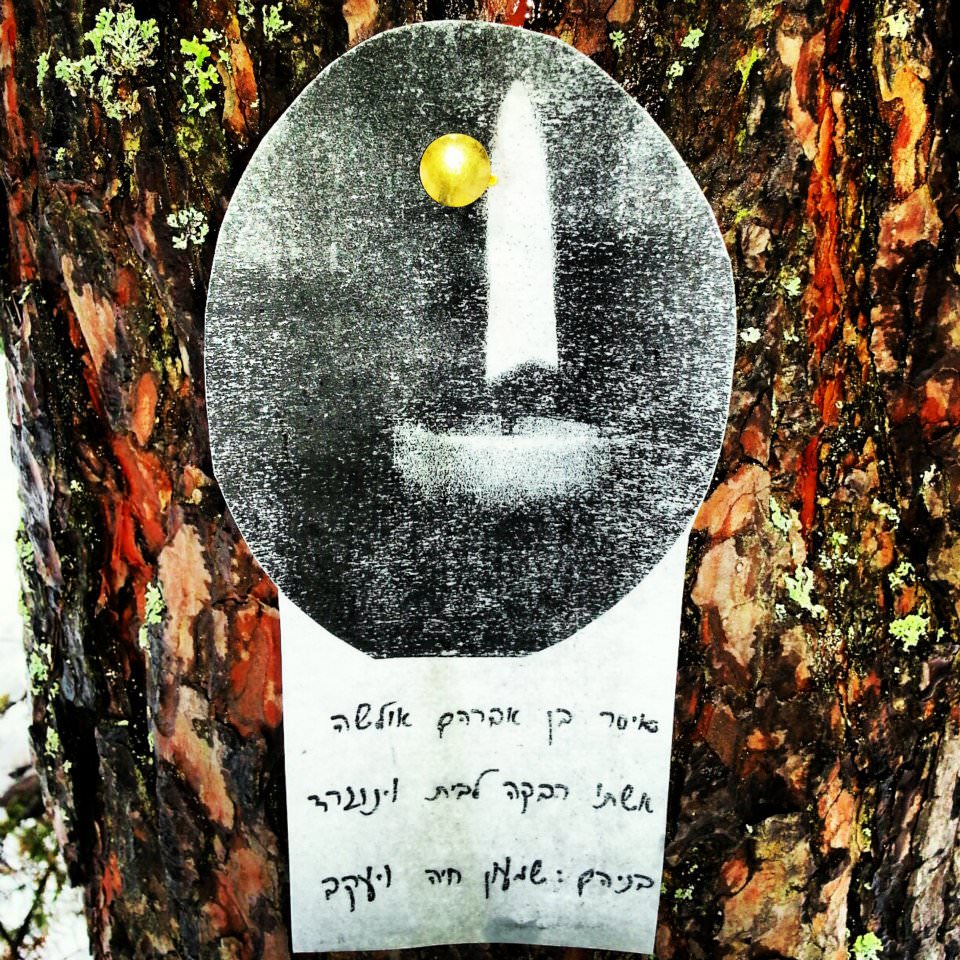 איסר בן אברהם אולשה
אשתו רבקה לבית וינוגרד
בניהם: שמעון חיה ויעקב